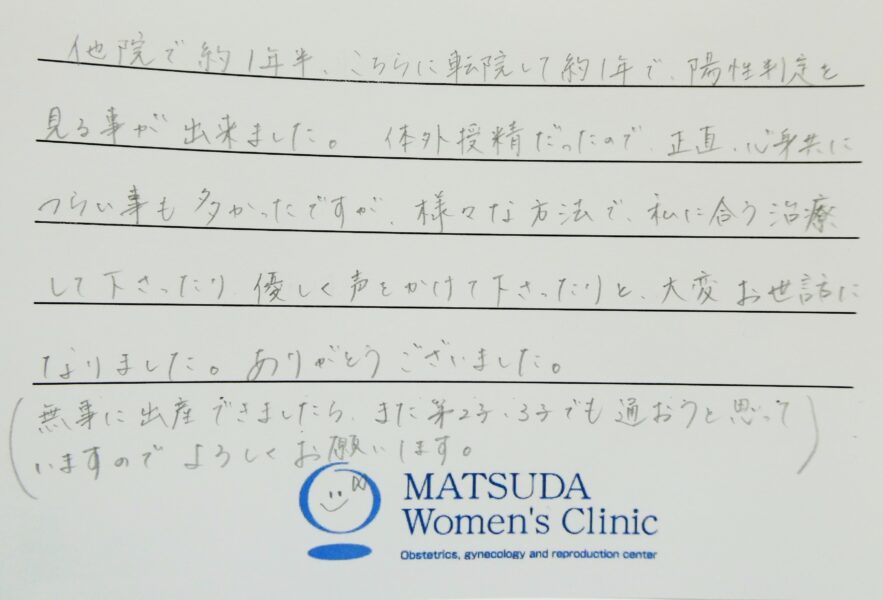 他院で約1年半、こちらに転院して約1年で、陽性判定を
見る事が出来ました。体外授精だったので、正直、心身共に
つらい事も多かったですが、様々な方法で、私に合う治療
して下さったり、優しく声をかけて下さったりと、大変お世話に
なりました。ありがとうございました。
(無事に出産できましたら、また第2子、3子でも通おうと思って
いますのでよろしくお願いします。)
MATSUDA
Women's Clinic
Obstetrics, gynecology and reproduction center